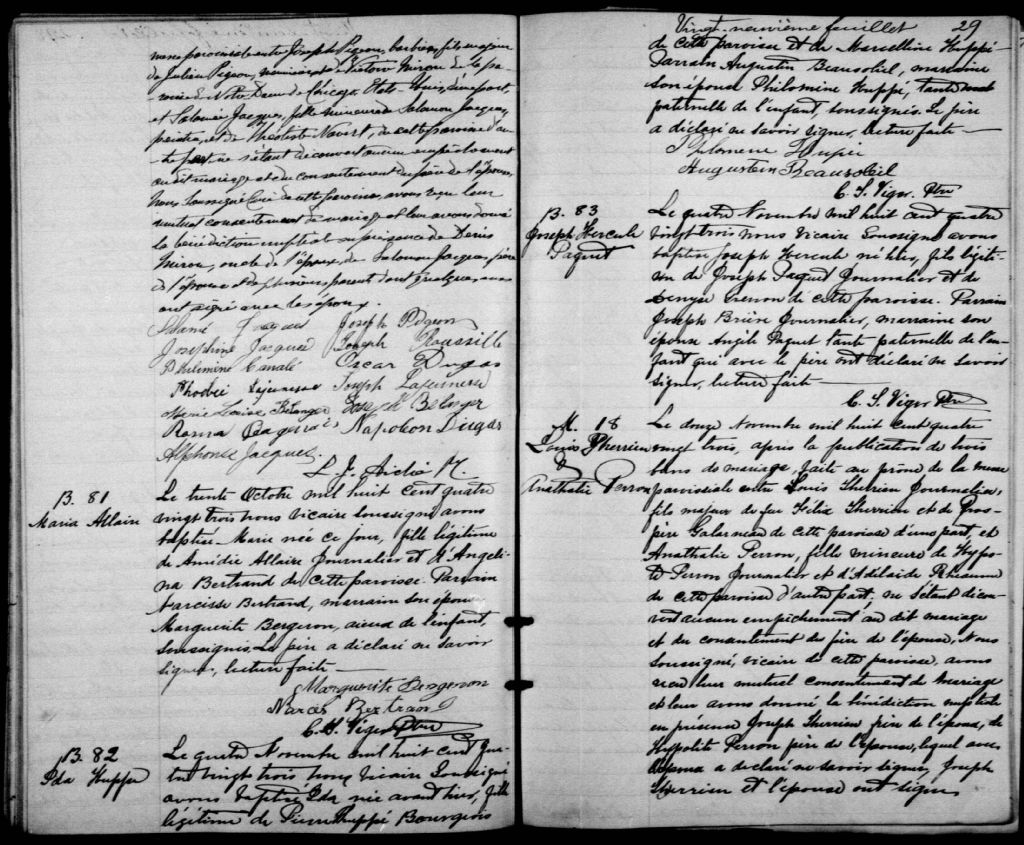 paroissiale entre Joseph Pigeon, barbier, fils majeur
de Julien Pigeon, menuisier et de Victoire Miron de la pa-
roisse de Notre Dame de Chicago, Etats-Unis, d'une part,
et Salomée Jacques, fille mineure de Salomon Jacques,
peintre, et de de cette paroisse d'au-
tre part, ne s'étant découvert aucun empêchement
au dit mariage et du consentement du père de l'épouse,
Nous soussigné Curé de cette paroisse, avons reçu leur
mutuel consentement de mariage et leur avons donné
la bénédiction nuptiale en présence de Denis
Miron, oncle de l'époux, de Salomon Jacques, père
de l'épouse et de plusieurs parents dont quelques uns
ont signé avec les époux.
Joseph Pigeon
Josephine Jacques Joseph
Philimène Oscar Dugas
Lajeunesse Joseph Lajeunesse
Marie Louise Bélanger Joseph Belanger
Roma Napoléon Dugas
Alphonse Jacques
B. 81
Maria Allaire
Le trente Octobre mil huit cent quatre
vingt trois nous vicaire soussigné avons
baptisé Marie née ce jour, fille légitime
de Amédée Allaire journalier et d'Angéli-
na Bertrand de cette paroisse. Parrain
Narcisse Bertrand, marraine son épouse
Marguerite Bergeron, aieux de l'enfant,
soussignés. Le père a déclaré ne savoir
signer, lecture faite
Marguerite Bergeron
Narcis Bertrand
C. S. Viger Ptre
B. 82
Ida Huppé
Le quatre Novembre mil huit cent qua-
tre vingt trois nous vicaire soussigné
avons baptisé Ida née avant hier, fille
légitime de Pierre Huppé Bourgeois
Vingt-neuvième feuillet 29
de cette paroisse et de Marcelline Huppé
Parrain Augustin Beausoliel, marraine
son épouse Philomine Huppé, tante
paternelle de l'enfant, soussignés. Le père
a déclaré ne savoir signer, lecture faite
Philomene Hupée
Augustin Beausoliel
C. S. Viger. Ptre
B. 83
Joseph Hercule
Paquet
Le quatre Novembre mil huit cent quatre
vingt trois nous vicaire soussigné avons
baptisé Joseph Hercule né hier, fils légiti-
me de Joseph Paquet Journalier et de
de cette paroisse. Parrain
Joseph Brière Journalier, marraine son
épouse Angèle Paquet tante paternelle de l'en-
fant qui avec le père ont déclaré ne savoir
signer, lecture faite
C. S. Viger Ptre
M. 18
Louis Therrien
&
Anathalie Perron
Le douze Novembre mil huit cent quatre
vingt trois, après la publication de trois
bans de mariage, faite au prône de la messe
paroissiale entre Louis Therrien Journalier,
fils majeur de feu Félix Therrien et de Pros-
père Galarneau de cette paroisse d'une part, et
Anathalie Perron, fille mineure de Hyppo-
te Perron Journalier et d'Adelaide Rheaume
de cette paroisse d'autre part, ne s'étant décou-
vert aucun empêchement au dit mariage
et du consentement du père de l'épouse, Nous
soussigné, vicaire de cette paroisse, avons
reçu leur mutuel consentement de mariage
et leur avons donné la bénédiction nuptiale
en présence Joseph Therrien père de l'époux, de
Hyppolite Perron père de l'épouse, lequel avec
l'époux a déclaré ne savoir signer, Joseph
Therrien et l'épouse ont signé